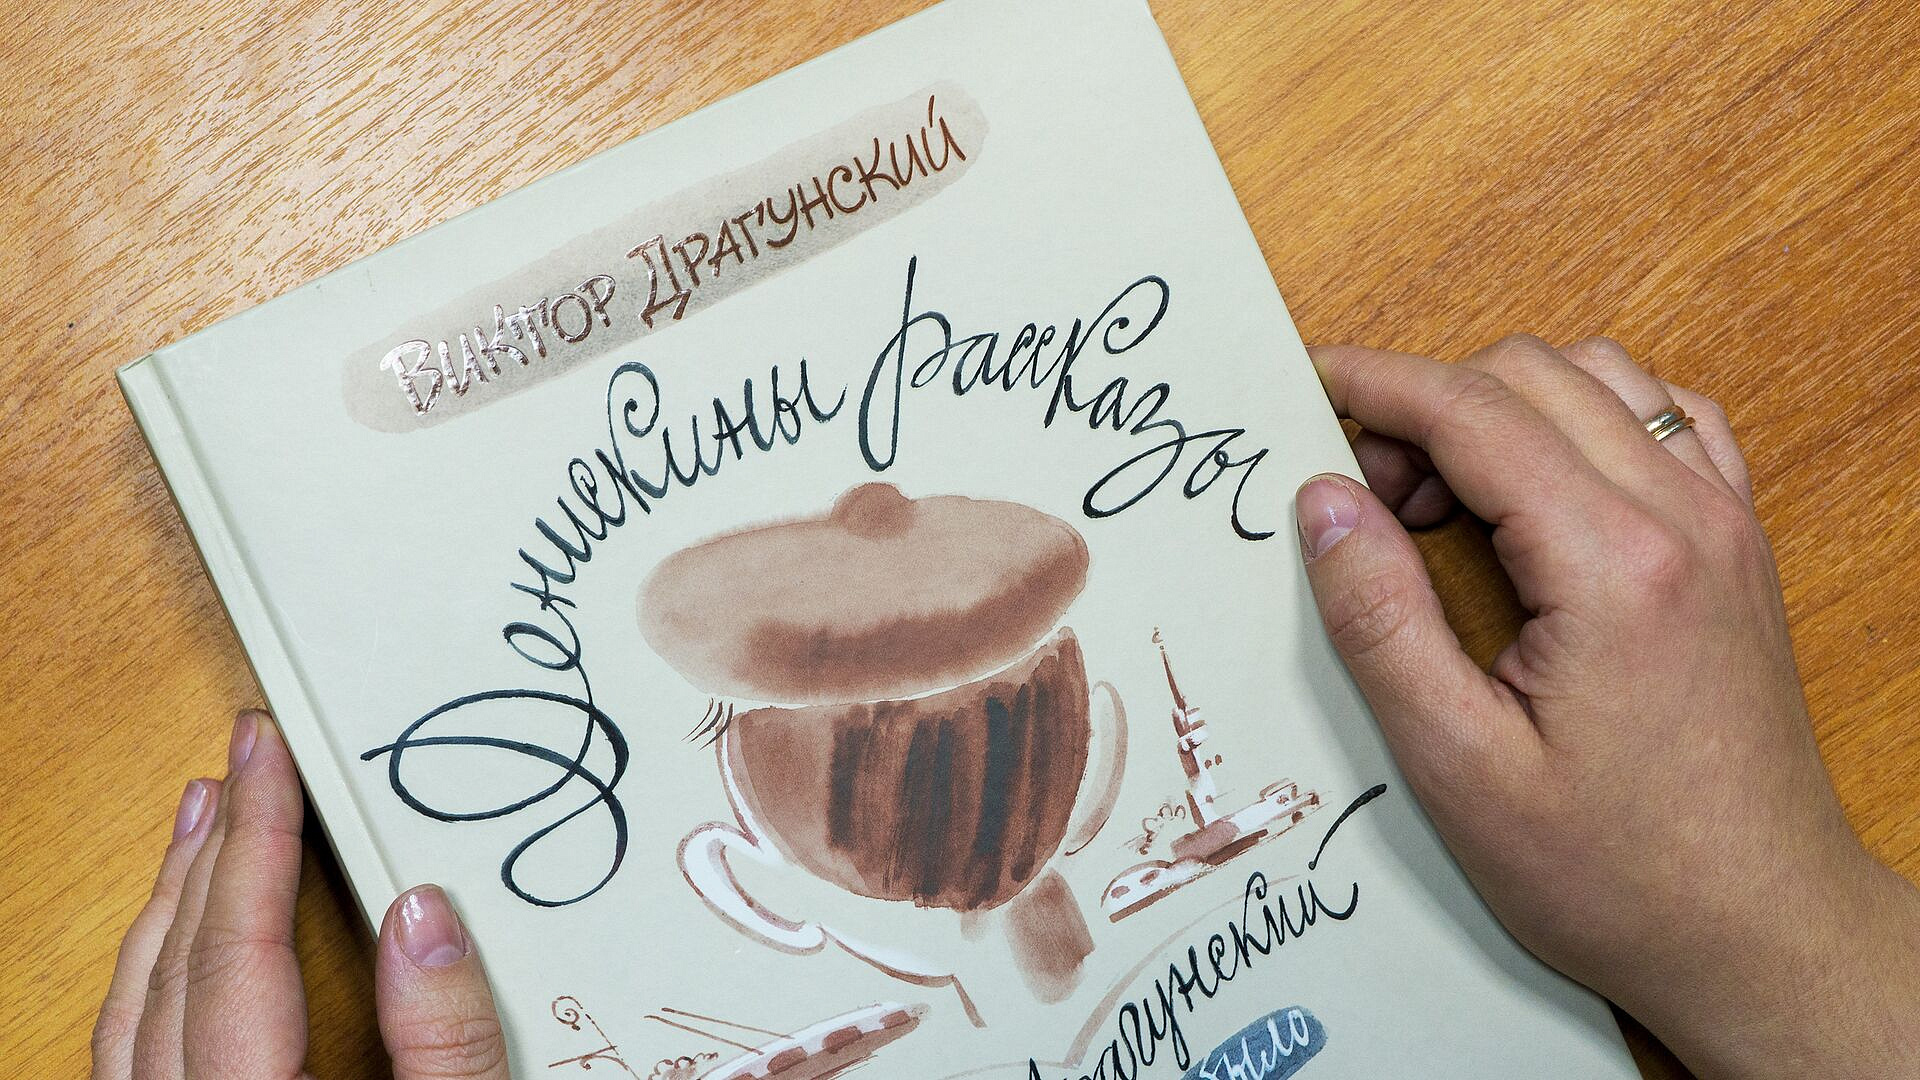 Виктор Драгунский
Денискины рассказы
Драгунский
было